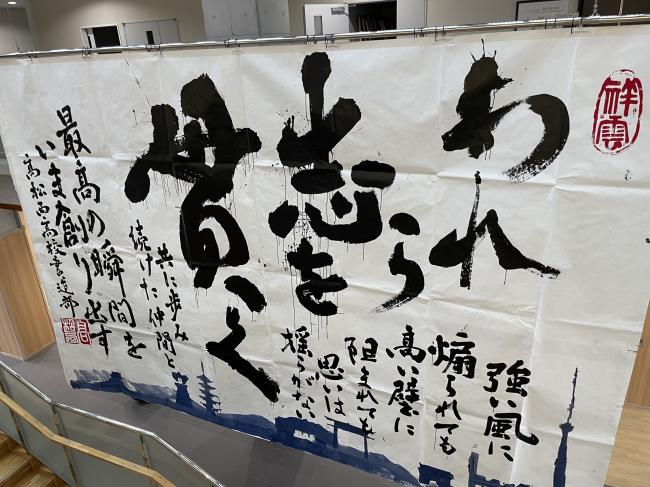 祥雲
われ
ら
志を
貫く
強い風に
煽られても
高い壁に
阻まれても
思いは
揺らがない
共に歩み
続けた仲間と
最高の瞬間を
いま創り出す
高松西高校書道部